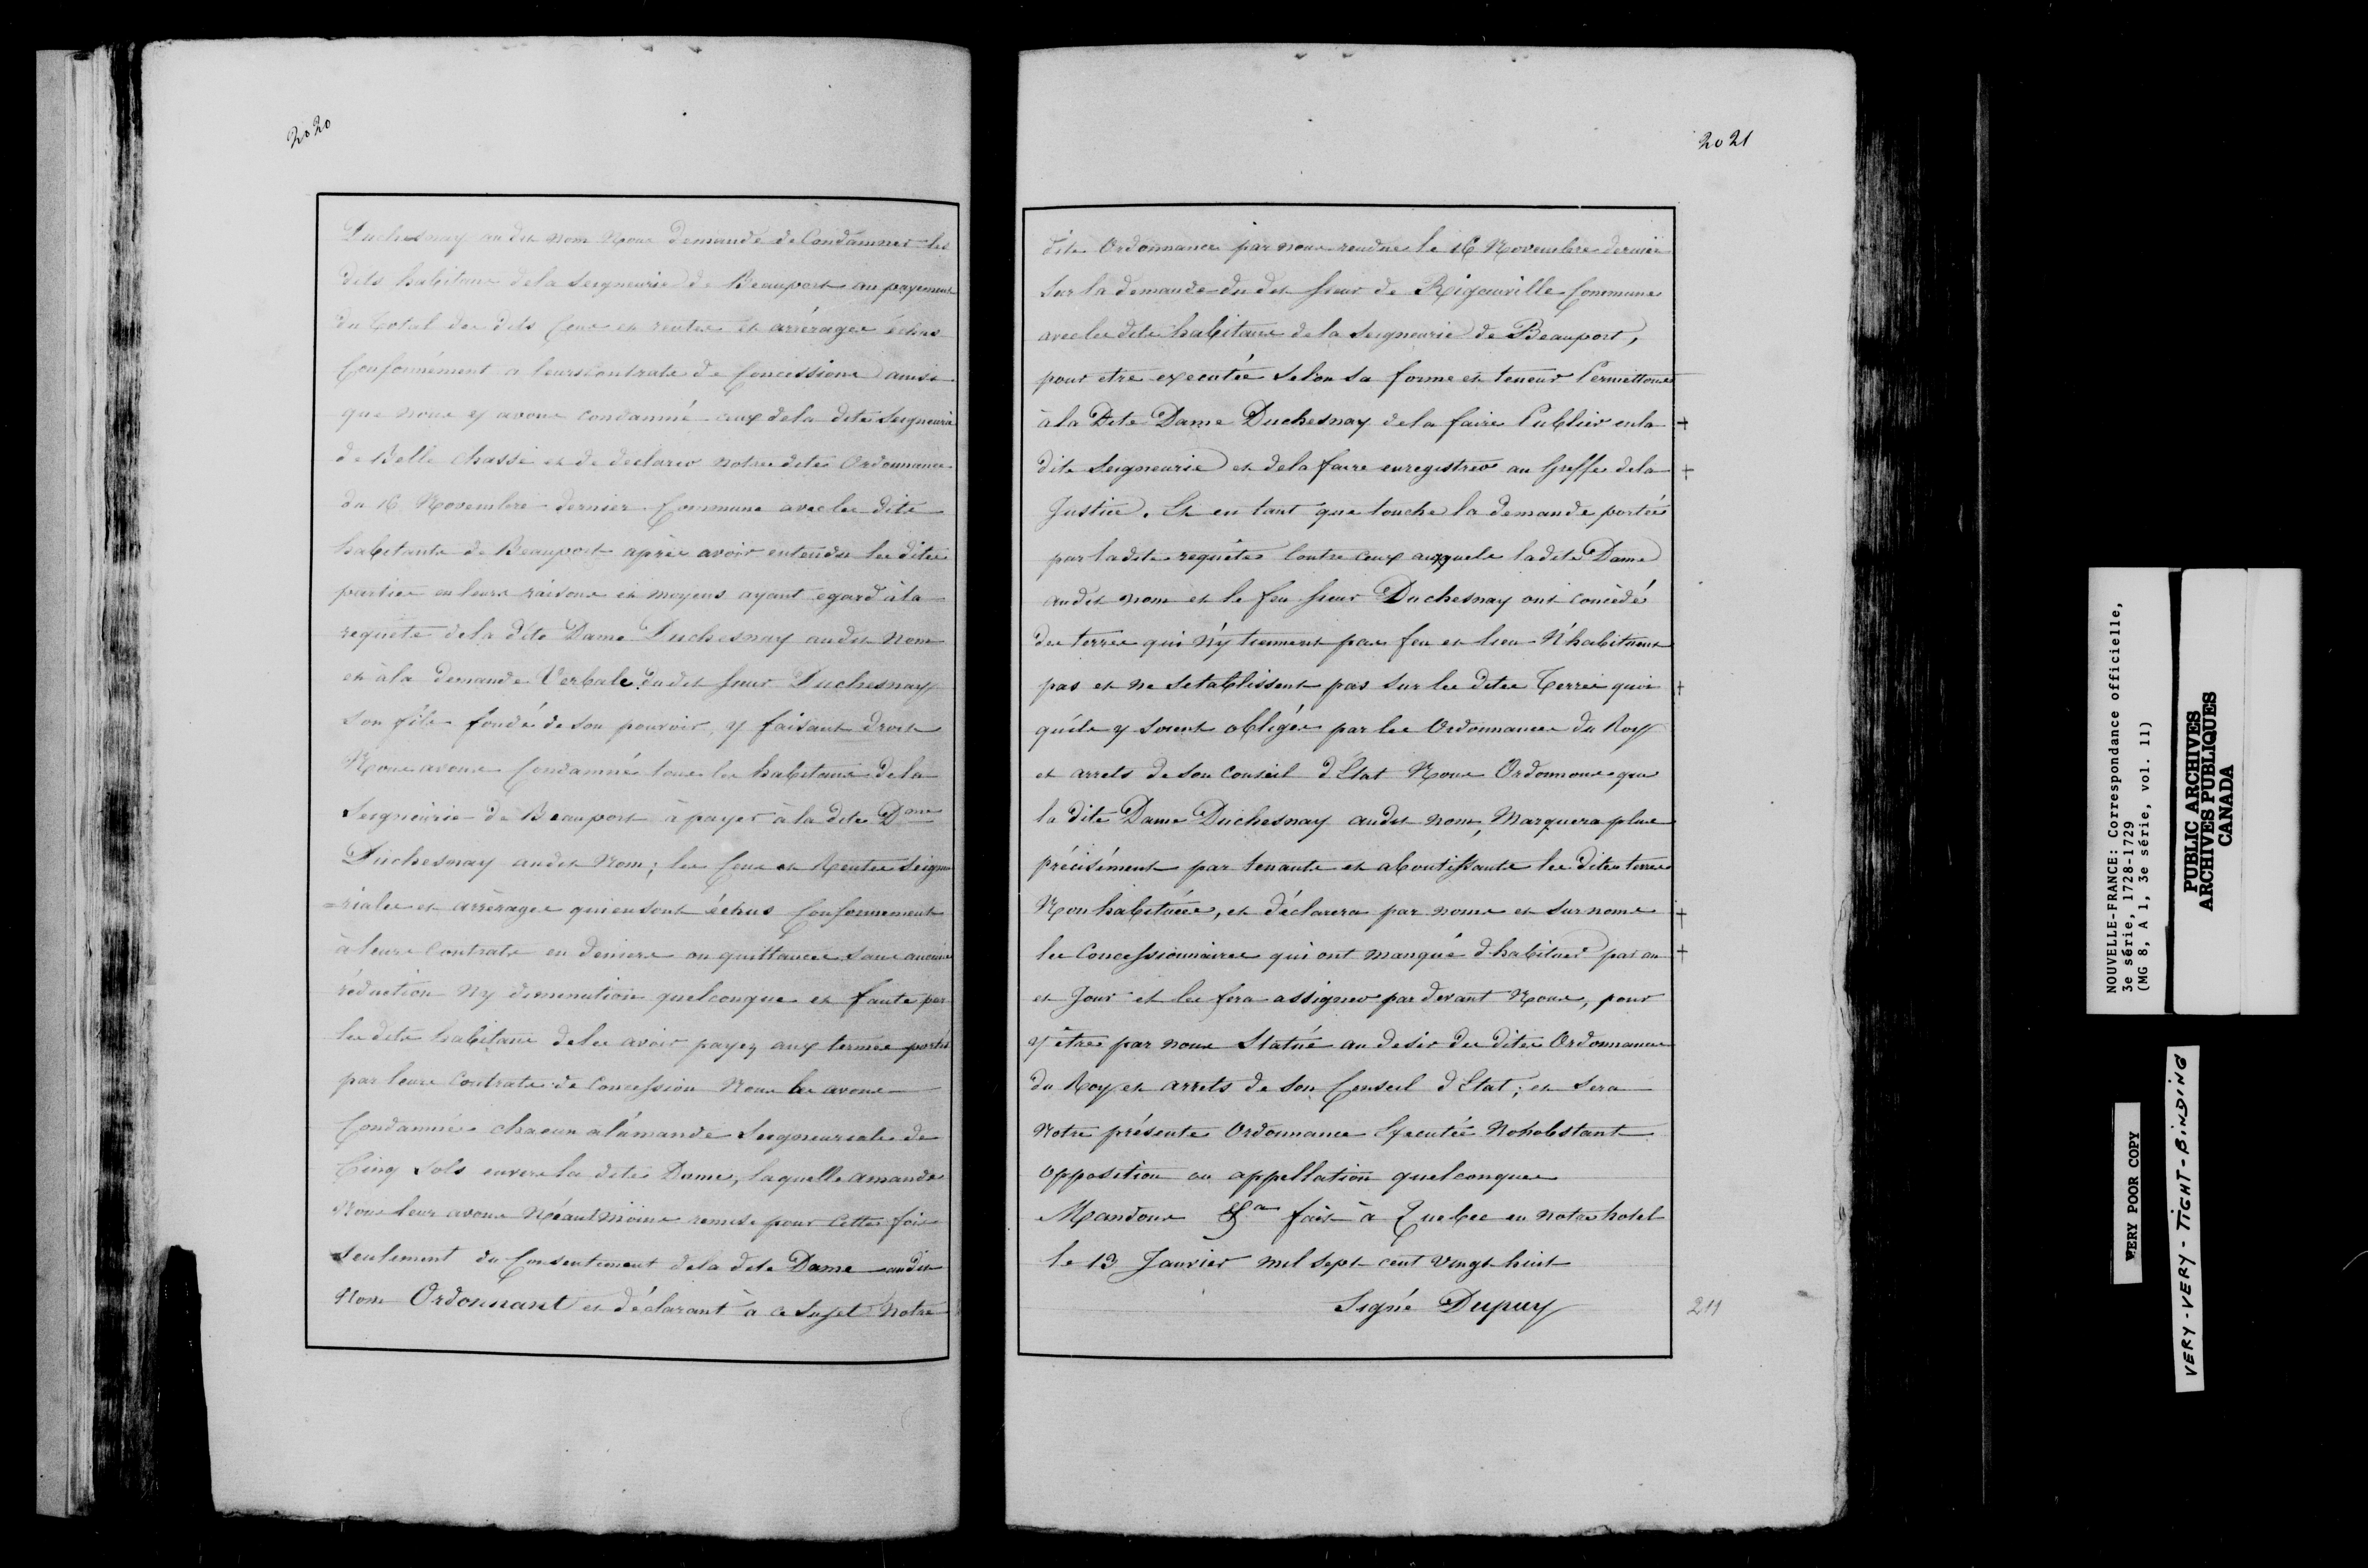 2020
Duchesnay au dit nom Nous demande de Condamner les
dits habitans de la Seigneurie de Beauport au payement
du total des dits Cens et rentes et arrérages échus
Conformément a leurs Contrats de Concessions ainsi
que nous y avons Condamné ceux de la dite Seigneurie
de Belle Chasse et de declarer notre dite Ordonnance
du 16 Novembre dernier Commune avec les dits
habitants de Beauport après avoir entendu les dites
parties en leurs raisons et moyens ayant egard à la
requête de la dite Dame Duchesnay audit Nom
et à la demande Verbale dudit Sieur Duchesnay
son fils fondé de son pouvoir, y faisant droit
Nous avons Condamné tous les habitans de la
Seigneurie de Beauport à payer à la dite Dame
Duchesnay audit Nom; les Cens et Rentes Seigneu
=riales et arrérages qui en sont échus Conformement
à leurs Contrats en deniers ou quittances sans aucune
réduction Ny diminution quelconque et faute par
les dits habitans de les avoir payez aux termes portés
par leurs Contrats de Concession Nous les avons
Condamnés chacun a l'amande Seigneuriale de
Cinq Sols envers la dite Dame, laquelle amande
Nous leur avons Néantmoins remise pour cette fois
Seulement du Consentement de la dite Dame audit
Nom Ordonnant et déclarant à ce Sujet Notre
2021
dite Ordonnance par nous rendue le 16 Novembre dernier
Sur la demande du dit Sieur de Rigauville Commune
avec les dits habitans de la Seigneurie de Beauport,
pour etre executée Selon Sa forme et teneur Permettons
à la Dite Dame Duchesnay de la faire Publier en la +
dite Seigneurie et de la faire enregistrer au Greffe de la +
Justice. Et en tant que touche la demande portée
par la dite requête Contre Ceux auxquels la dite Dame
audit nom et le feu Sieur Duchesnay ont concédé
des terres qui N'y tiennent pas feu et lieu N'habituent
pas et ne Setablissent pas Sur les dites Terres quoi +
qu'ils y Soient obligés par les Ordonnances du Roy
et arrets de Son Conseil d'Etat Nous Ordonnons que
la dite Dame Duchesnay audit nom, Marquera plus
précisément par tenants et aboutissants les dites terres
Non habituées, et déclarera par noms et surnoms +
les Concessionnaires qui ont manqué d'habituer par an +
et Jour et les fera assigner par devant Nous, pour
y être par nous Statué au desir des dites Ordonnances
du Roy et arrets de Son Conseil d'Etat; et Sera
Notre présente Ordonnance Executée Nonobstant
Opposition ou appellation quelconques
Mandons &a fait à Quebec en notre hotel
le 13 Janvier mil sept cent vingt huit
Signé Dupuy
211
NOUVELLE-FRANCE: Correspondance officielle,
3e série, 1728-1729
(MG 8, A 1, 3e série, vol. 11)
PUBLIC ARCHIVES
ARCHIVES PUBLIQUES
CANADA
VERY POOR COPY
VERY-VERY-TIGHT-BINDING